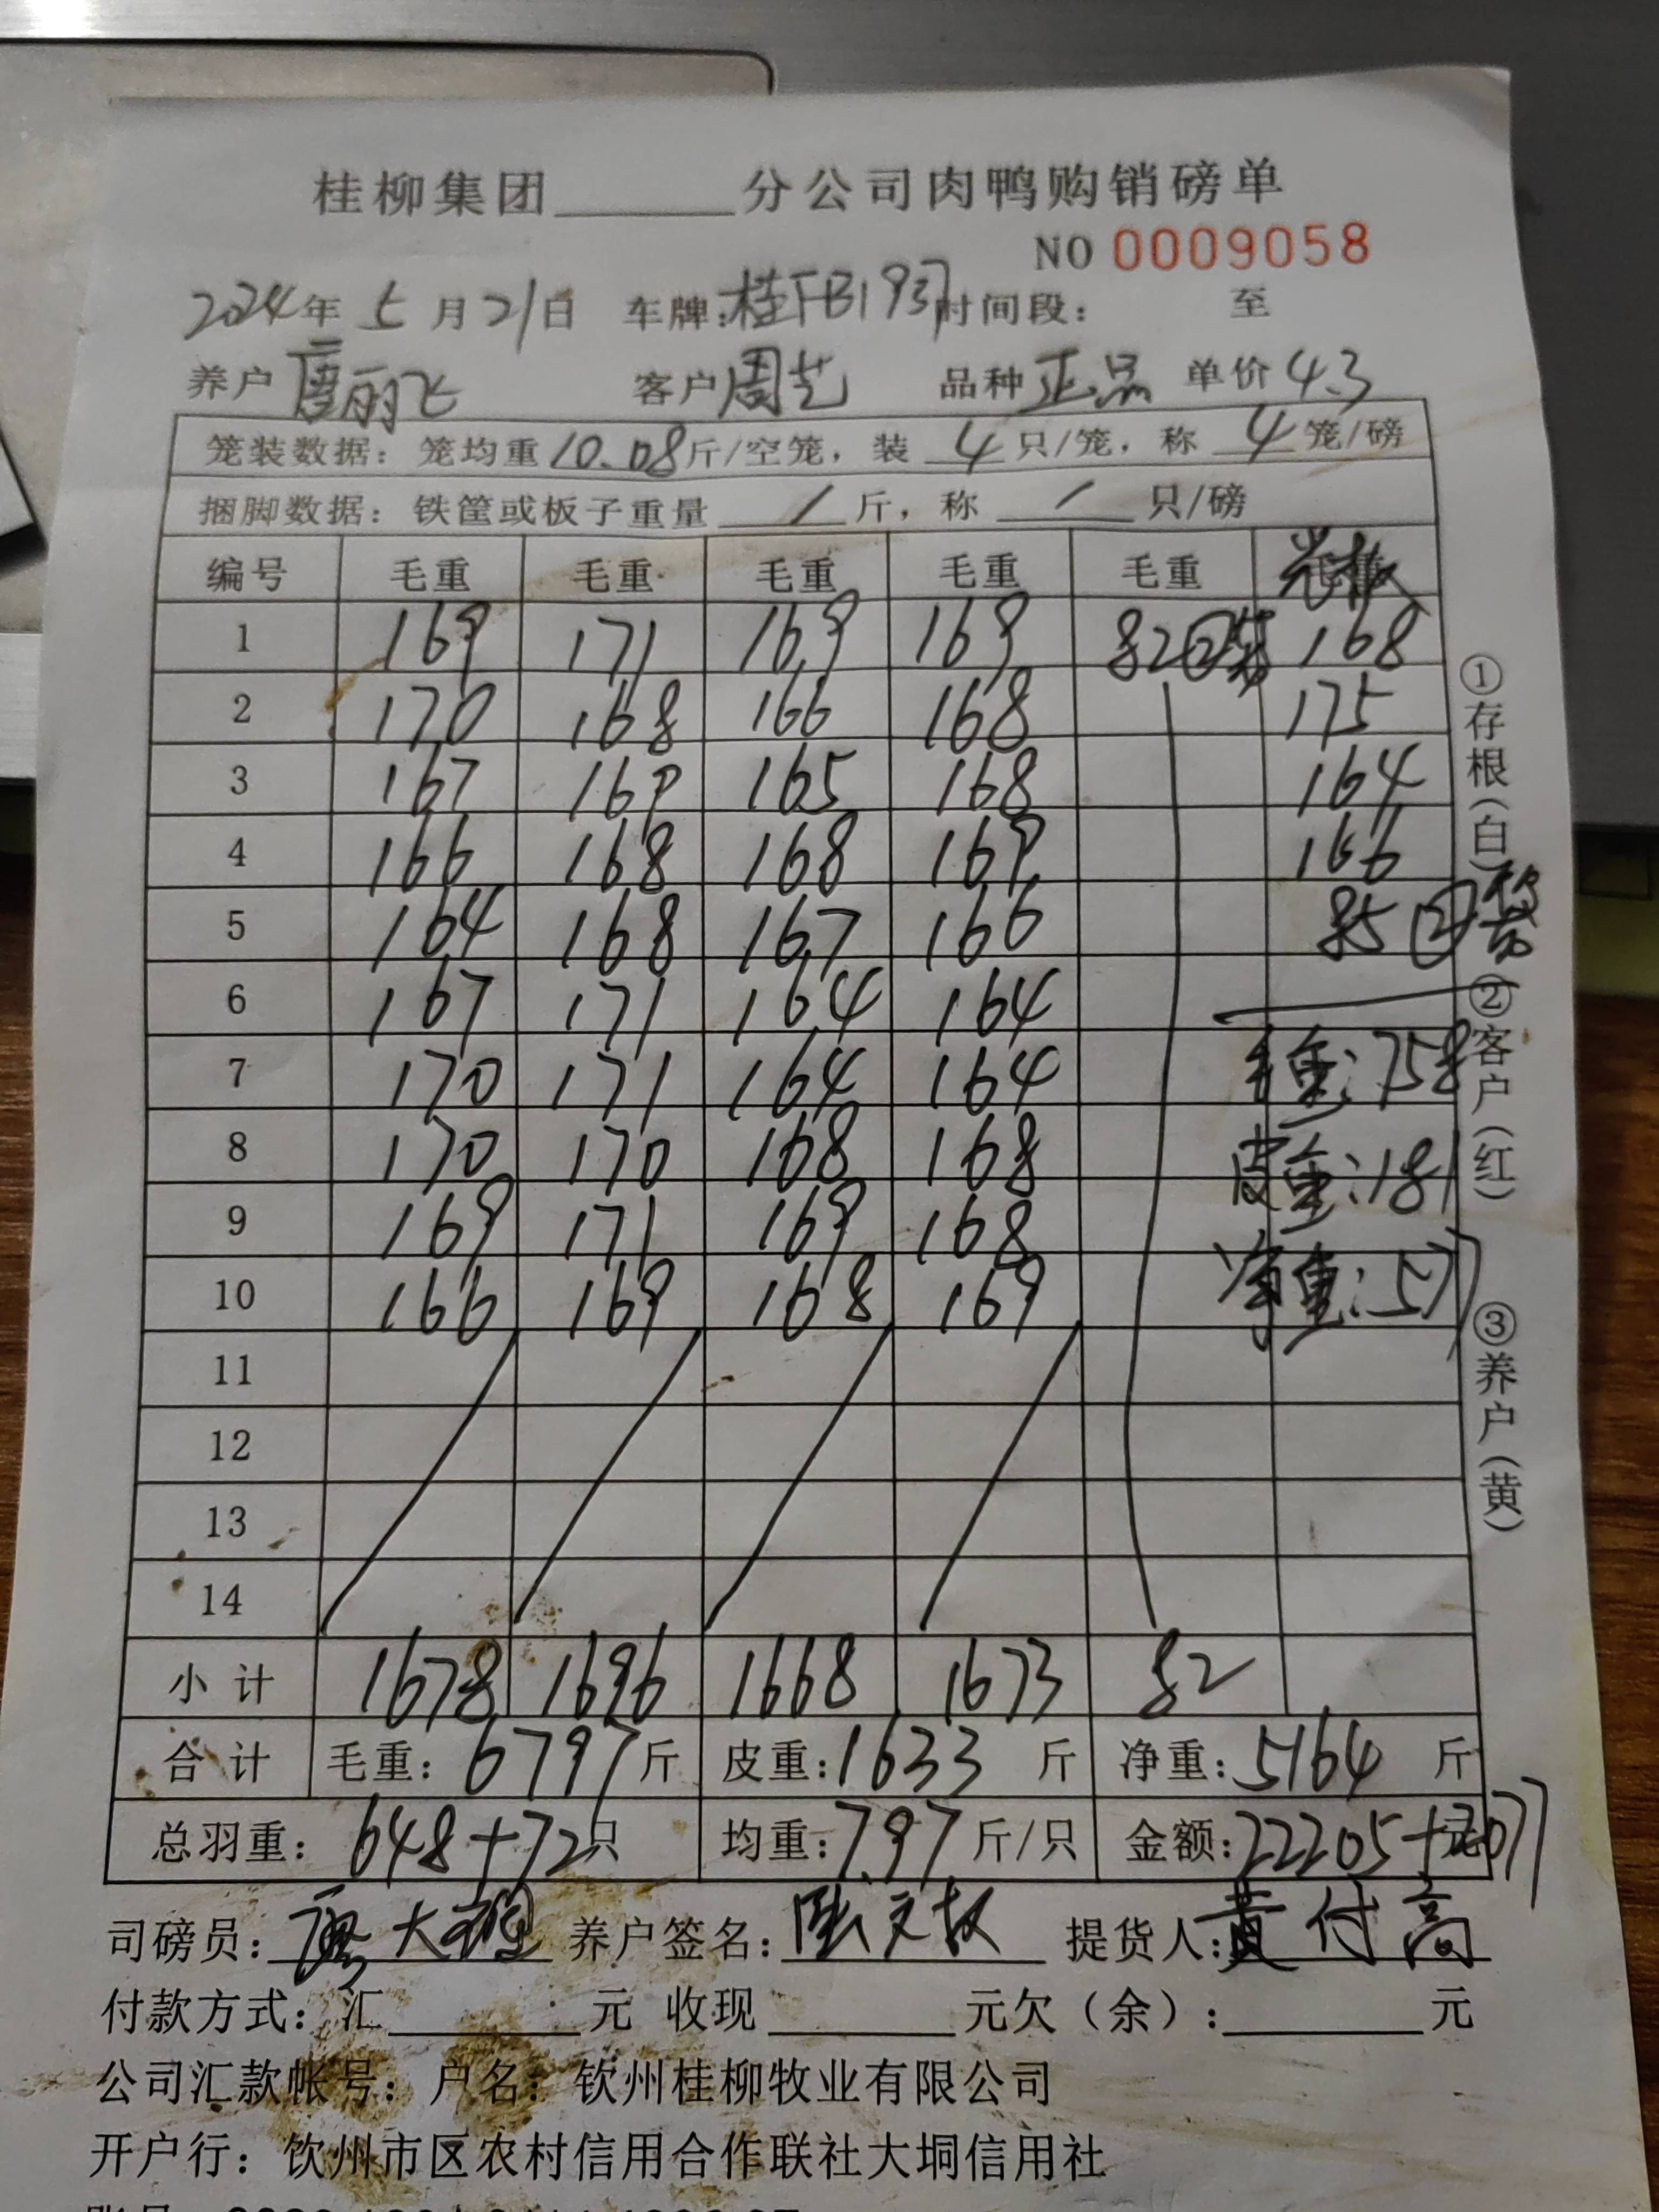 桂柳集团______分公司肉鸭购销磅单
NO 0009058
2024年 5 月 21日 车牌:桂FB1937 时间段: 至
养户 唐丽飞 客户 周艺 品种 正品 单价 4.3
笼装数据: 笼均重 10.08 斤/空笼, 装 4 只/笼, 称 4 笼/磅
捆脚数据: 铁筐或板子重量 / 斤, 称 / 只/磅
编号 毛重 毛重 毛重 毛重 毛重
1 169 171 169 169 82②笼 168
2 170 168 166 168 175
3 167 169 165 168 164
4 166 168 168 169 166
5 164 168 167 166 85 ②笼
6 167 171 164 164
7 170 171 164 164 毛重:758
8 170 170 168 168 皮重:181
9 169 171 169 168 净重:577
10 166 169 168 169
11
12
13
14
小计 1678 1696 1668 1673 82
合计 毛重: 6797 斤 皮重: 1633 斤 净重: 5164 斤
总羽重: 648+72只 均重: 7.97 斤/只 金额: 22205+元
司磅员: 大 养户签名: 陆 提货人: 黄付高
付款方式: 汇______元 收现______元欠(余):______元
公司汇款帐号: 户名: 钦州桂柳牧业有限公司
开户行: 钦州市区农村信用合作联社大垌信用社
①存根(白) ②客户(红) ③养户(黄)